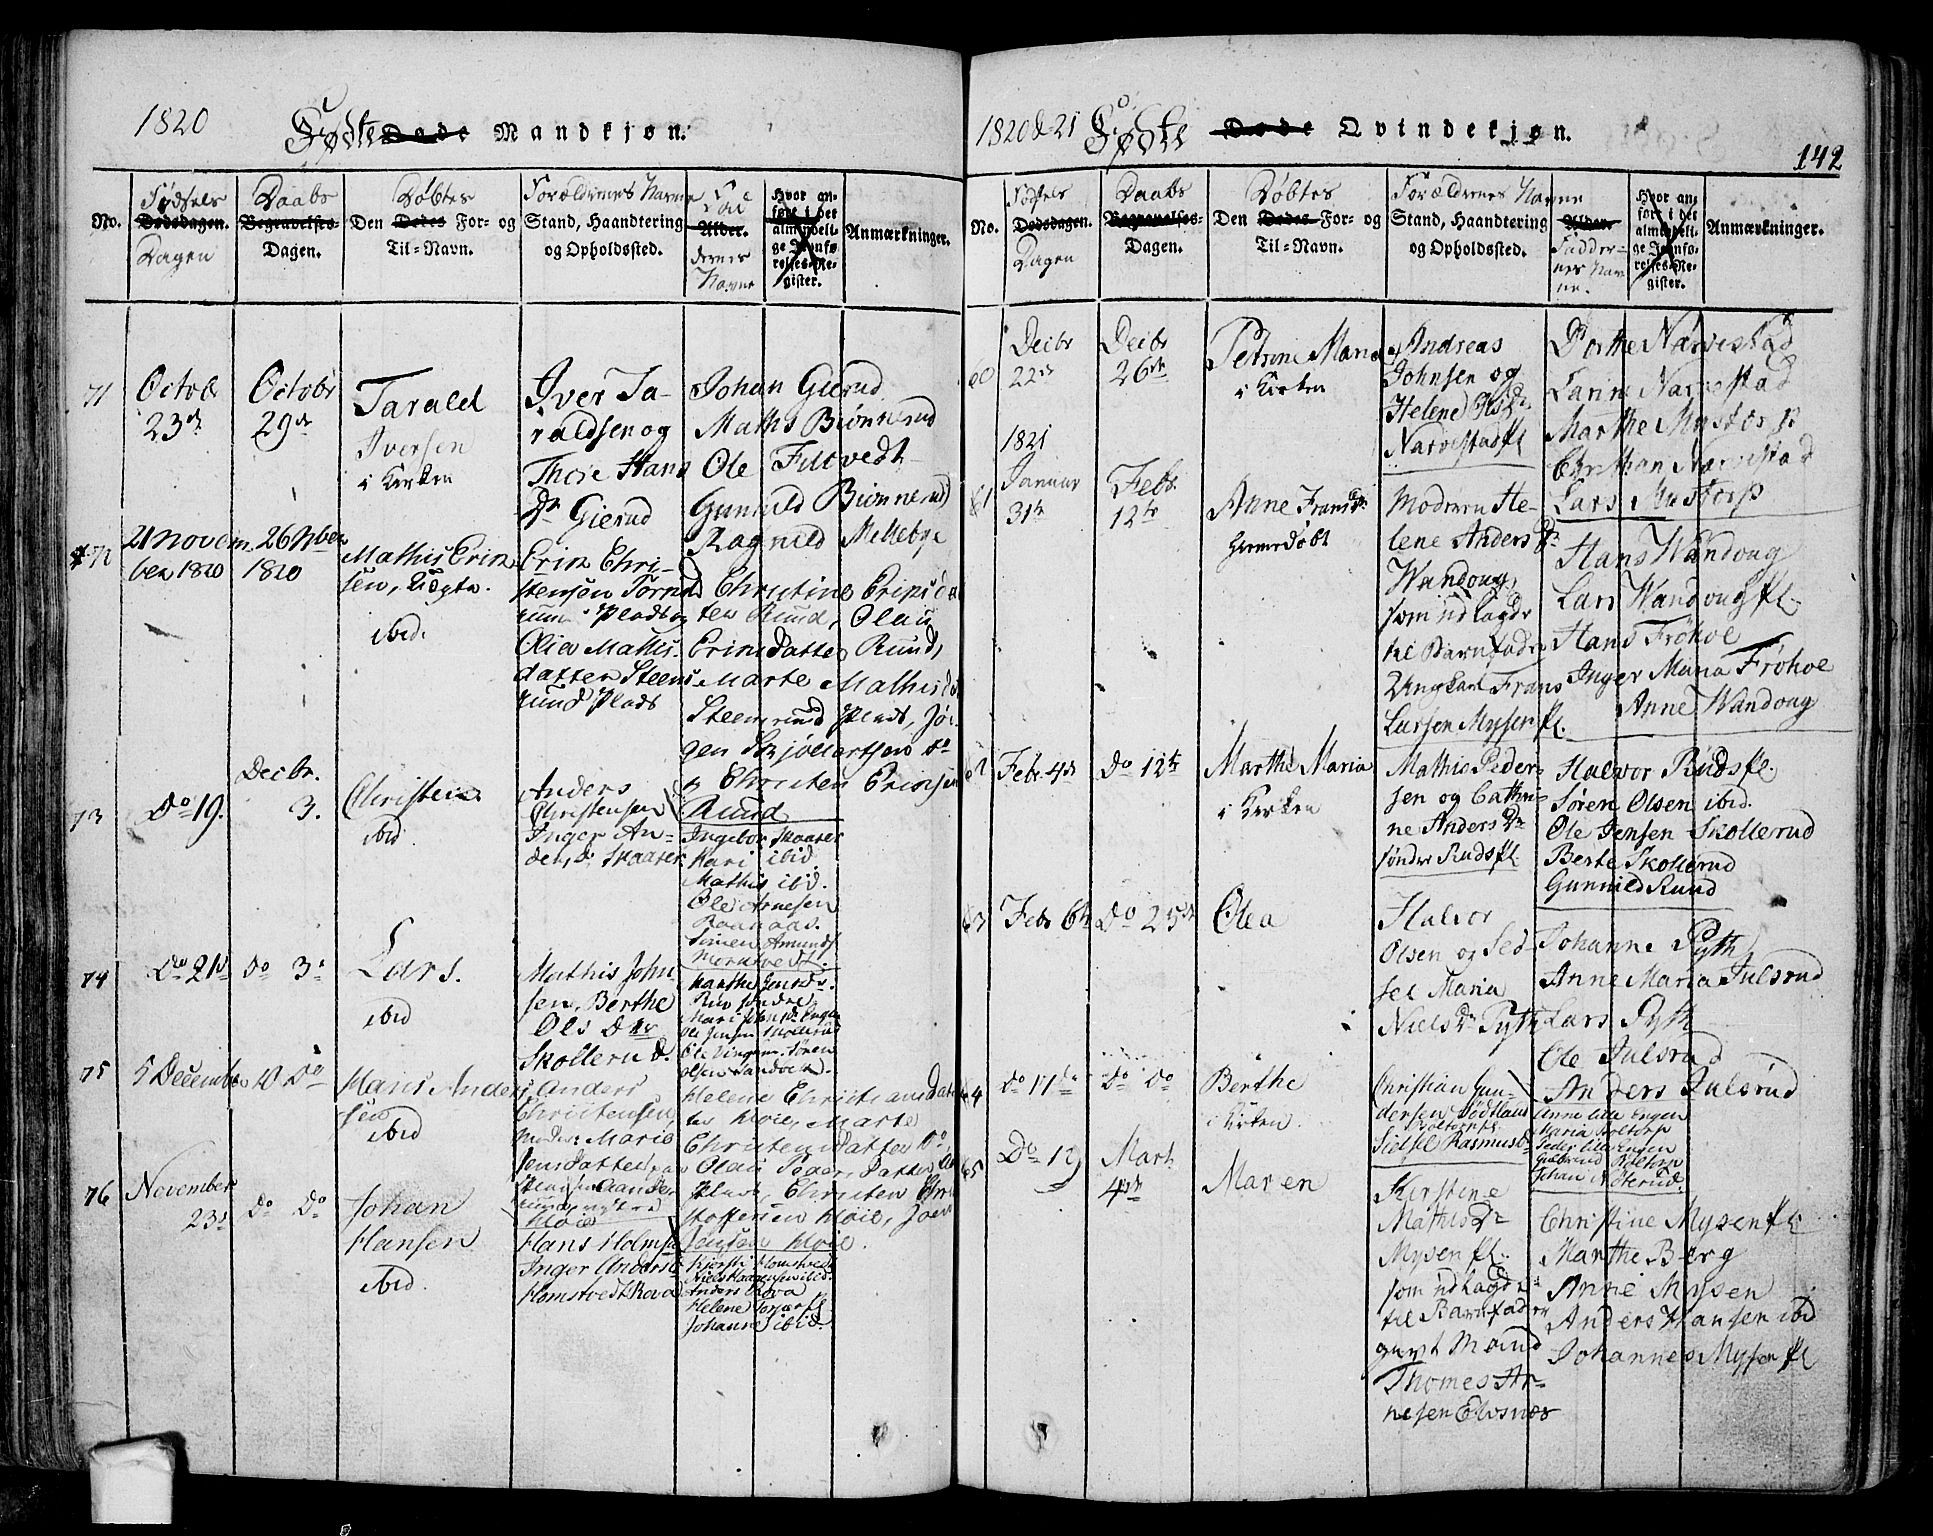 1820
Fødte Døde Mandkjøn.
No.
Fødsels
Dødsdagen.
Dagen
Daabs
Begravelses-
Dagen.
Døbtes
Den Dødes For- og
Til-Navn.
Forældrenes Navne
Stand, Haandtering
og Opholdssted.
Fad
Alder.
dernes
Navne
Hvor an-
ført i det
almindeli-
ge Jevnfø-
relses-Re-
gister.
Anmærkninger.
71
Octob
23de
Octobr
29de
Tarald
Iversen
i Kirken
Iver Ta-
raldsen og
Thore Hans
Dr Gierud
Johan Gierud
Maths Biønnerud
Ole Filtvedt
Gunnild Biønnerud
Ragnild Mellebye
72
21 Novem-
ber 1820
26 Nber
1820
Mathis Erik-
sen, Uægte.
ibid.
Erik Chri-
stensen
Plads og
Olia Mathis-
datter Steens-
rund Plads
Christine Eriksdat-
ter Ruud, Olaus
Eriksdatter Ruud,
Marte Mathisd
Steensrund Plads, Jør-
gen
Christen Eriksen
Ruud
73
Do 19.
Decbr.
3.
Christen
ibid.
Anders
Christensen
Inger An-
ders d. Skaarer
Ingebor Skaarer
Kari ibid.
Mathis ibid.
Ole Arnesen
Simen Amunds
74
Do 21d
Do 3.
Lars.
ibid
Mathis John-
sen, Berthe
Ols Dtr
Skollerud.
Marthe
Ole Jensen Skollerud
Søren
Olsen Sandvik.
75
5 December
D Do
Hans Anders-
sen
ibid
Anders
Christensen,
Moder: Marie
Jensdatter
Høie
Helene Christiansdat-
ter Høie, Marte
Christensdatter Do
Olau Peders Datter
Plads, Christen Chri-
stoffersen Høie,
Høie.
76
November
23d
Do Do
Johan
Hansen
ibid.
Hans Holms
Inger Anders
Homstvedt Kova
Kjersti Homstvedt
ibid.
Anders Kova
Helene
Johanne ibid.
1820 & 21
Fødte Døde Qvindekjøn.
142
No.
Fødsels
Dødsdagen.
Dagen
Daabs
Begravelses-
Dagen.
Døbtes
Den Dødes For- og
Til-Navn.
Forældrenes Navne
Stand, Haandtering
og Opholdssted.
Alder.
Fadder-
nes Nav-
ne.
Hvor an-
ført i det
almindeli-
ge Jevnfø-
relses-Re-
gister.
Anmærkninger.
60
Decbr
22de
Decbr
26de
Petrine Maria
i Kirken
Andreas
Johnsen og
Helene Ils Dr
Narvestad Pl
Dorthe Narvestad
Karin Narvestad
Marthe Mustorp
Christian Narvestad
Lars Mustorp
61
1821
Januar
31te
Febr.
12te
Anne Frans Dr
hjemmedøbt
Moderen He-
lene Anders Dr
Wandoug,
som udlagde
til Barnfader
Ungkarl Frans
Larsen Mysen Pl.
Hans Wandoug
Lars Wandoug Pl.
Hans Frøhoe
Inger Maria Frøhoe
Anne Wandoug
62
Febr. 4de
Do 12te
Marthe Maria
i Kirken
Mathis Peder-
sen og Cathri-
ne Anders Dr
søndre Ruds Pl.
Halvor Ruds Pl.
Søren Olsen ibid.
Ole Jensen Skollerud
Berte Skollerud
Gunnild Ruud
63
Febr 6te
Do 25de
Olea
Halvor
Olsen og Sed-
sel Maria
Niels Dr Pyth
Johanne Pyth
Anne Maria Julsrud
Lars Pyth
Ole Julsrud
Anders Julsrud
64
Do 17de
Do Do
Berthe
i Kirken.
Christian Gun-
dersen
Sidsel Rasmusd
Anne Lille Engen
Maria Toltorp
Peder Lille Engen
65
Do 19
Mart.
4de
Maren
Kirstene
Mathis Dr
Mysen Pl.
som udlagde
til Barnfader
givt Mand
Thomes Ar-
nesen Elvsnes
Christine Mysen Pl.
Marthe Berg
Anne Mysen
Anders Hansen ibid
Johannes Mysen Pl